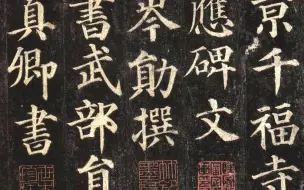 京千福寺
應碑文
岑勛撰
書武部員
真卿書